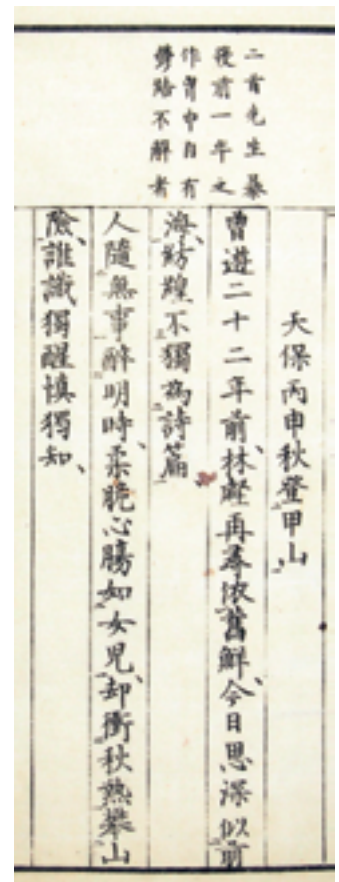 二首先生暴
發前一年之
作胷中自有
不解者
天保丙申秋登甲山
曾遊二十二年前、林壑再尋依舊鮮、今日思深似前
海、彷徨不獨為詩篇、
人隨無事醉明時、柔脆心腸如女兒、却衝秋熱攀山
險、誰識獨醒慎獨知、